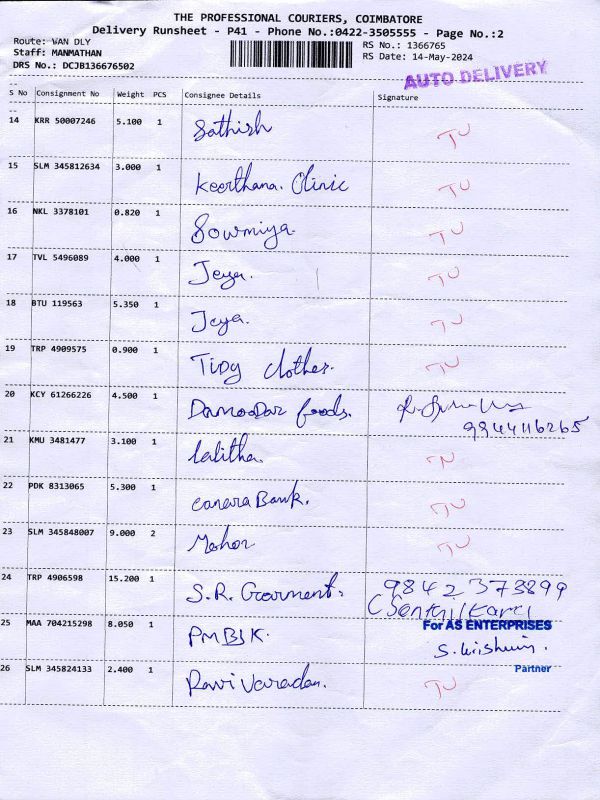 THE PROFESSIONAL COURIERS, COIMBATORE
Delivery Runsheet - P41 - Phone No.:0422-3505555 - Page No.:2
Route: WAN DLY
RS No.: 1366765
Staff: MANMATHAN
RS Date: 14-May-2024
DRS No.: DCJB136676502
AUTO DELIVERY
S No Consignment No Weight PCS Consignee Details Signature
14 KRR 50007246 5.100 1 Sathish TU
15 SLM 345812634 3.000 1 Keerthana. Clinic TU
16 NKL 3378101 0.820 1 Sowmiya. TU
17 TVL 5496089 4.000 1 Jeya. TU
18 BTU 119563 5.350 1 Jeya. TU
19 TRP 4909575 0.900 1 Tipy clothes. TU
20 KCY 61266226 4.500 1 Damoodar foods.
9944116265
21 KMU 3481477 3.100 1 Lalitha.
22 PDK 8313065 5.300 1 canara Bank. TU
23 SLM 345848007 9.000 2 Mohor TU
24 TRP 4906598 15.200 1 S.R. Garment. 9842373899
25 MAA 704215298 8.050 1 PMBJK. For AS ENTERPRISES
Partner
26 SLM 345824133 2.400 1 Ravi Varadan. TU